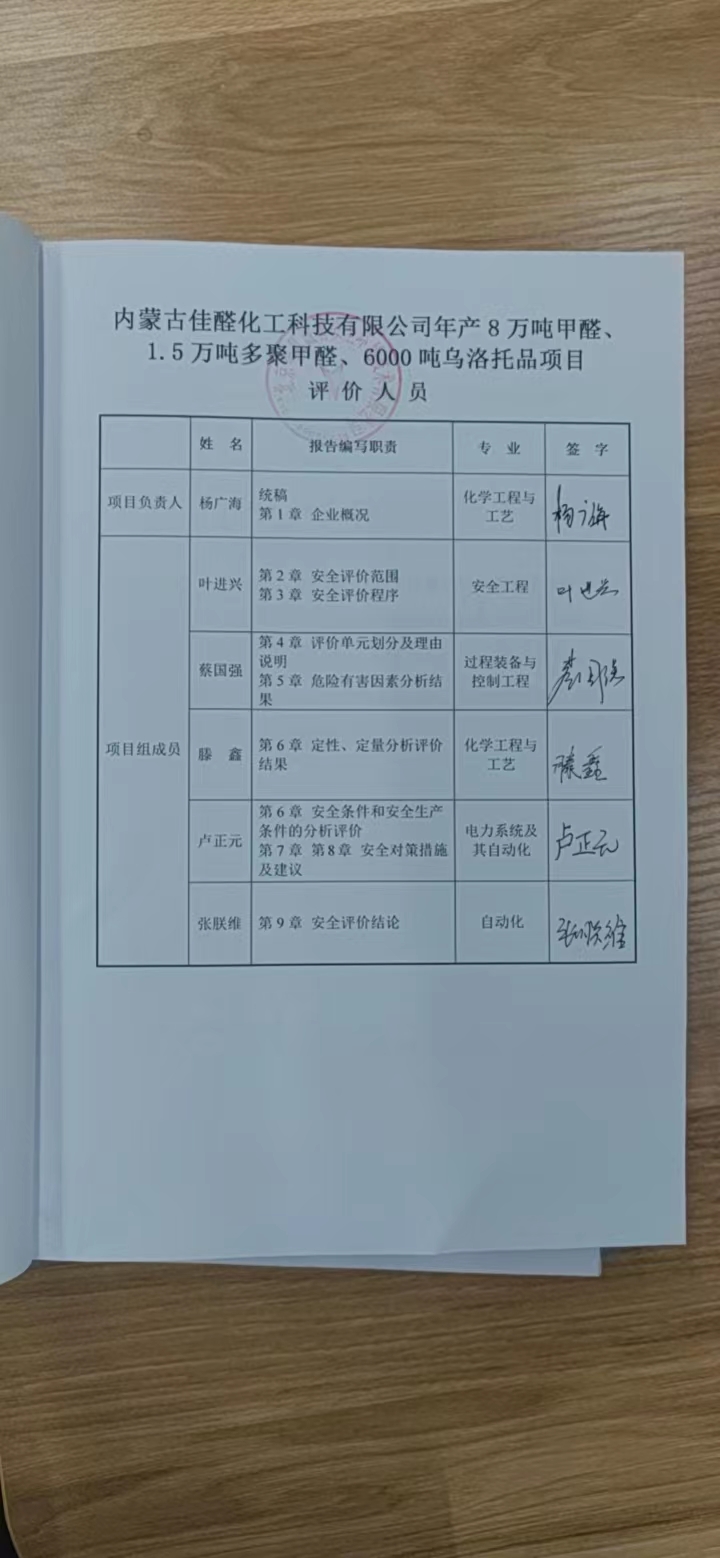 内蒙古佳醛化工科技有限公司年产8万吨甲醛、
1.5万吨多聚甲醛、6000吨乌洛托品项目
评 价 人 员
姓 名 报告编写职责 专 业 签 字
项目负责人 杨广海 统稿
第1章 企业概况 化学工程与
工艺 杨广海
项目组成员
叶进兴 第2章 安全评价范围
第3章 安全评价程序 安全工程 叶进兴
蔡国强 第4章 评价单元划分及理由
说明
第5章 危险有害因素分析结
果 过程装备与
控制工程 蔡国强
滕 鑫 第6章 定性、定量分析评价
结果 化学工程与
工艺 滕鑫
卢正元 第6章 安全条件和安全生产
条件的分析评价
第7章 第8章 安全对策措施
及建议 电力系统及
其自动化 卢正元
张朕维 第9章 安全评价结论 自动化 张朕维